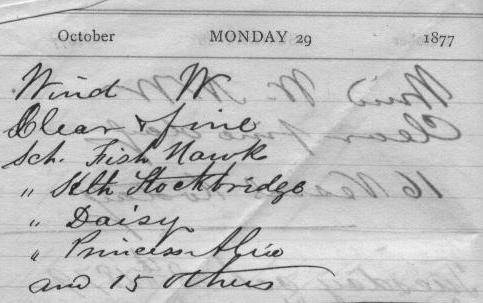 October MONDAY 29 1877
Wind W
Clear & fine
Sch. Fish Hawk
" Seth Stockbridge
" Daisy
" Princess Alice
and 15 others